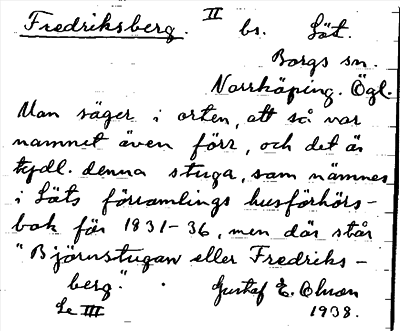 Fredriksberg. II bs. Löt.
Borgs sn.
Norrköping. Ögl.
Man säger i orten, att så var
namnet även förr, och det är
tydl. denna stuga, som nämnes
i Löts församlings husförhörs-
bok för 1831-36, men där står
"Björnstugan eller Fredriks-
berg".
Gustaf E. Olsson
Le III 1938.